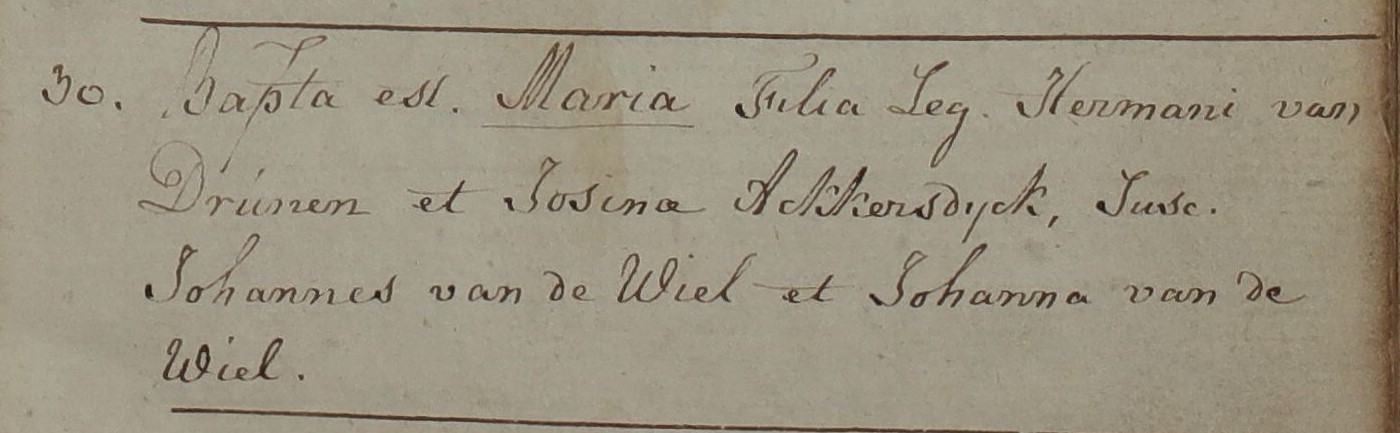 30. Bapta est. Maria Filia Leg. Hermani van
Drúnen et Josinæ Ackkersdyck, Susc.
Johannes van de Wiel et Johanna van de
Wiel.